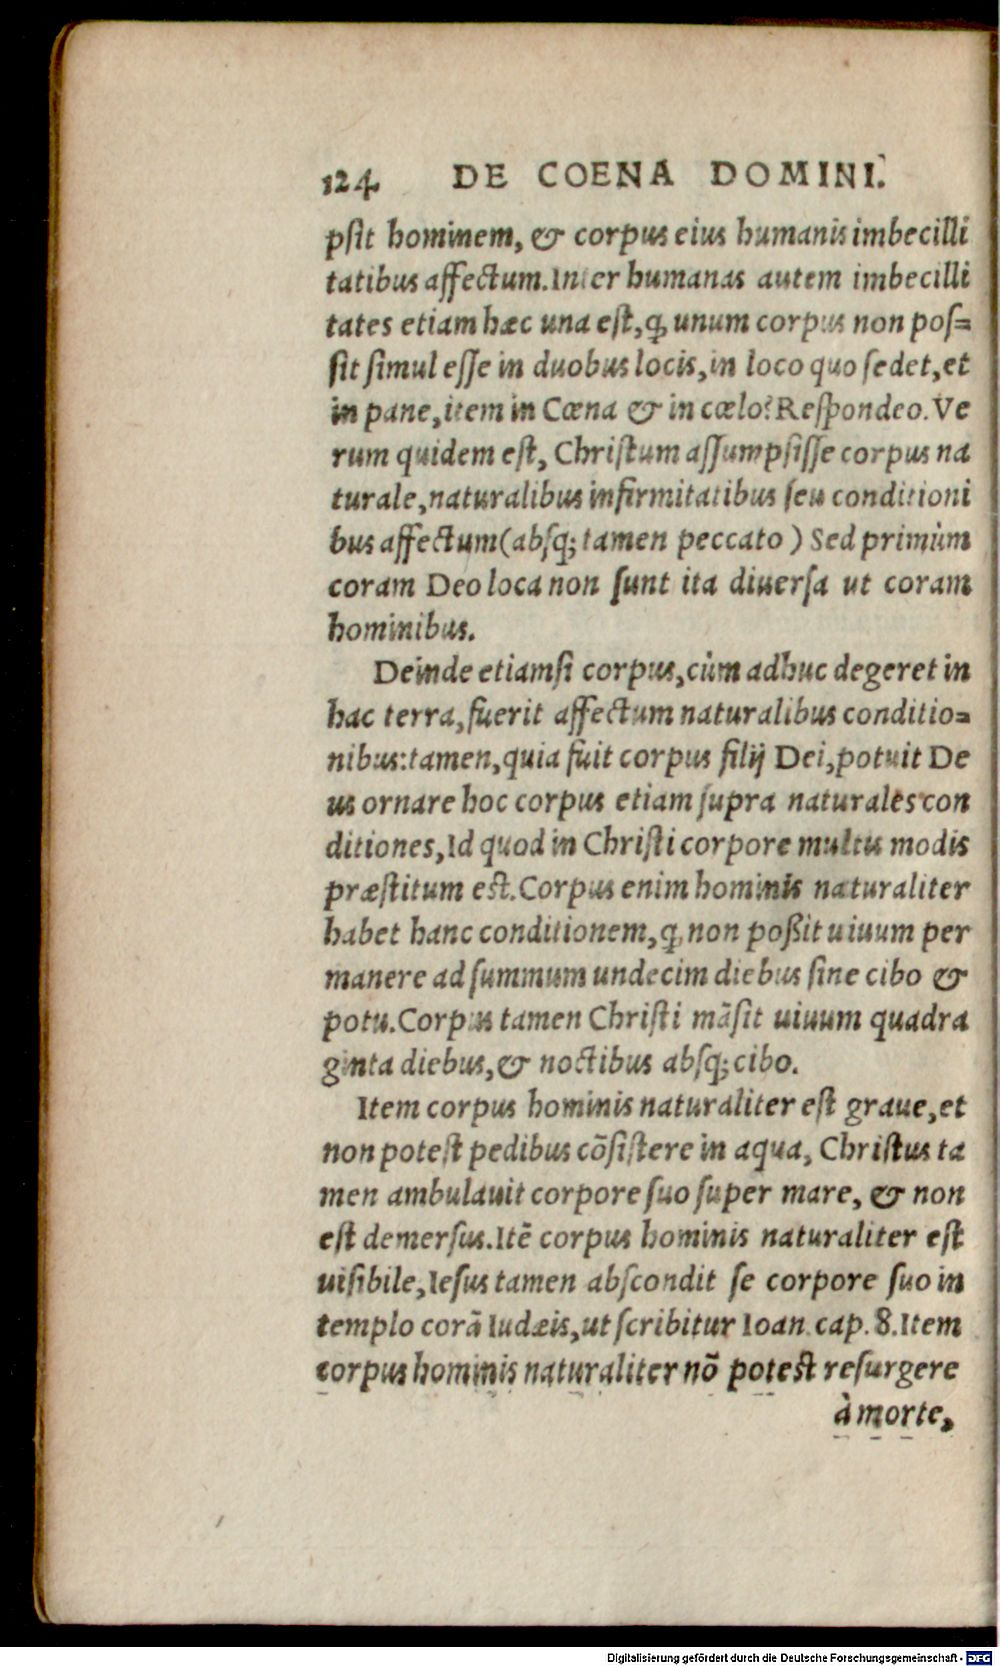 124 DE COENA DOMINI.
psit hominem, & corpus eius humanis imbecilli
tatibus affectum. Inter humanas autem imbecilli
tates etiam hæc una est, ꝙ unum corpus non pos=
sit simul esse in duobus locis, in loco quo sedet, et
in pane, item in Cœna & in cœlo? Respondeo. Ve
rum quidem est, Christum assumpsisse corpus na
turale, naturalibus infirmitatibus seu conditioni
bus affectum (absq; tamen peccato) Sed primùm
coram Deo loca non sunt ita diuersa ut coram
hominibus.
Deinde etiamsi corpus, cùm adhuc degeret in
hac terra, fuerit affectum naturalibus conditio=
nibus: tamen, quia fuit corpus filij Dei, potuit De
us ornare hoc corpus etiam supra naturales con
ditiones, Id quod in Christi corpore multis modis
præstitum est. Corpus enim hominis naturaliter
habet hanc conditionem, ꝙ non poßit uiuum per
manere ad summum undecim diebus sine cibo &
potu. Corpus tamen Christi mãsit uiuum quadra
ginta diebus, & noctibus absq; cibo.
Item corpus hominis naturaliter est graue, et
non potest pedibus cõsistere in aqua, Christus ta
men ambulauit corpore suo super mare, & non
est demersus. Itẽ corpus hominis naturaliter est
uisibile, Iesus tamen abscondit se corpore suo in
templo corã Iudæis, ut scribitur Ioan. cap. 8. Item
corpus hominis naturaliter nõ potest resurgere
à morte,
Digitalisierung gefördert durch die Deutsche Forschungsgemeinschaft - DFG